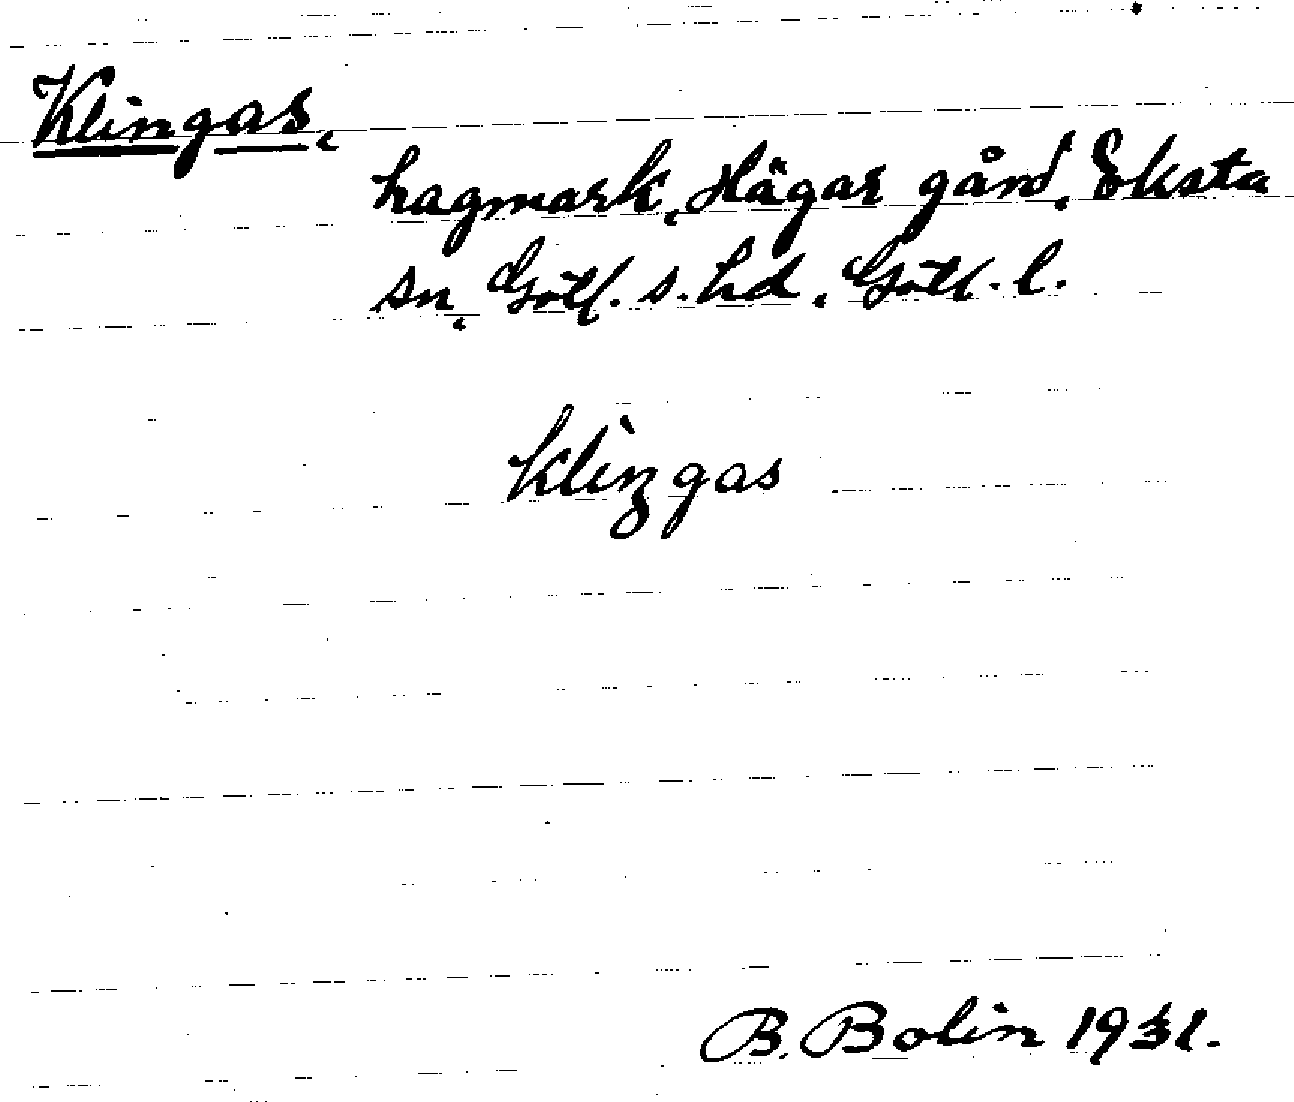 Klingas,
hagmark, Hägar gård, Eksta
sn, Gotl. s. hd., Gotl. l.
klìŋgas
B. Bolin 1931.